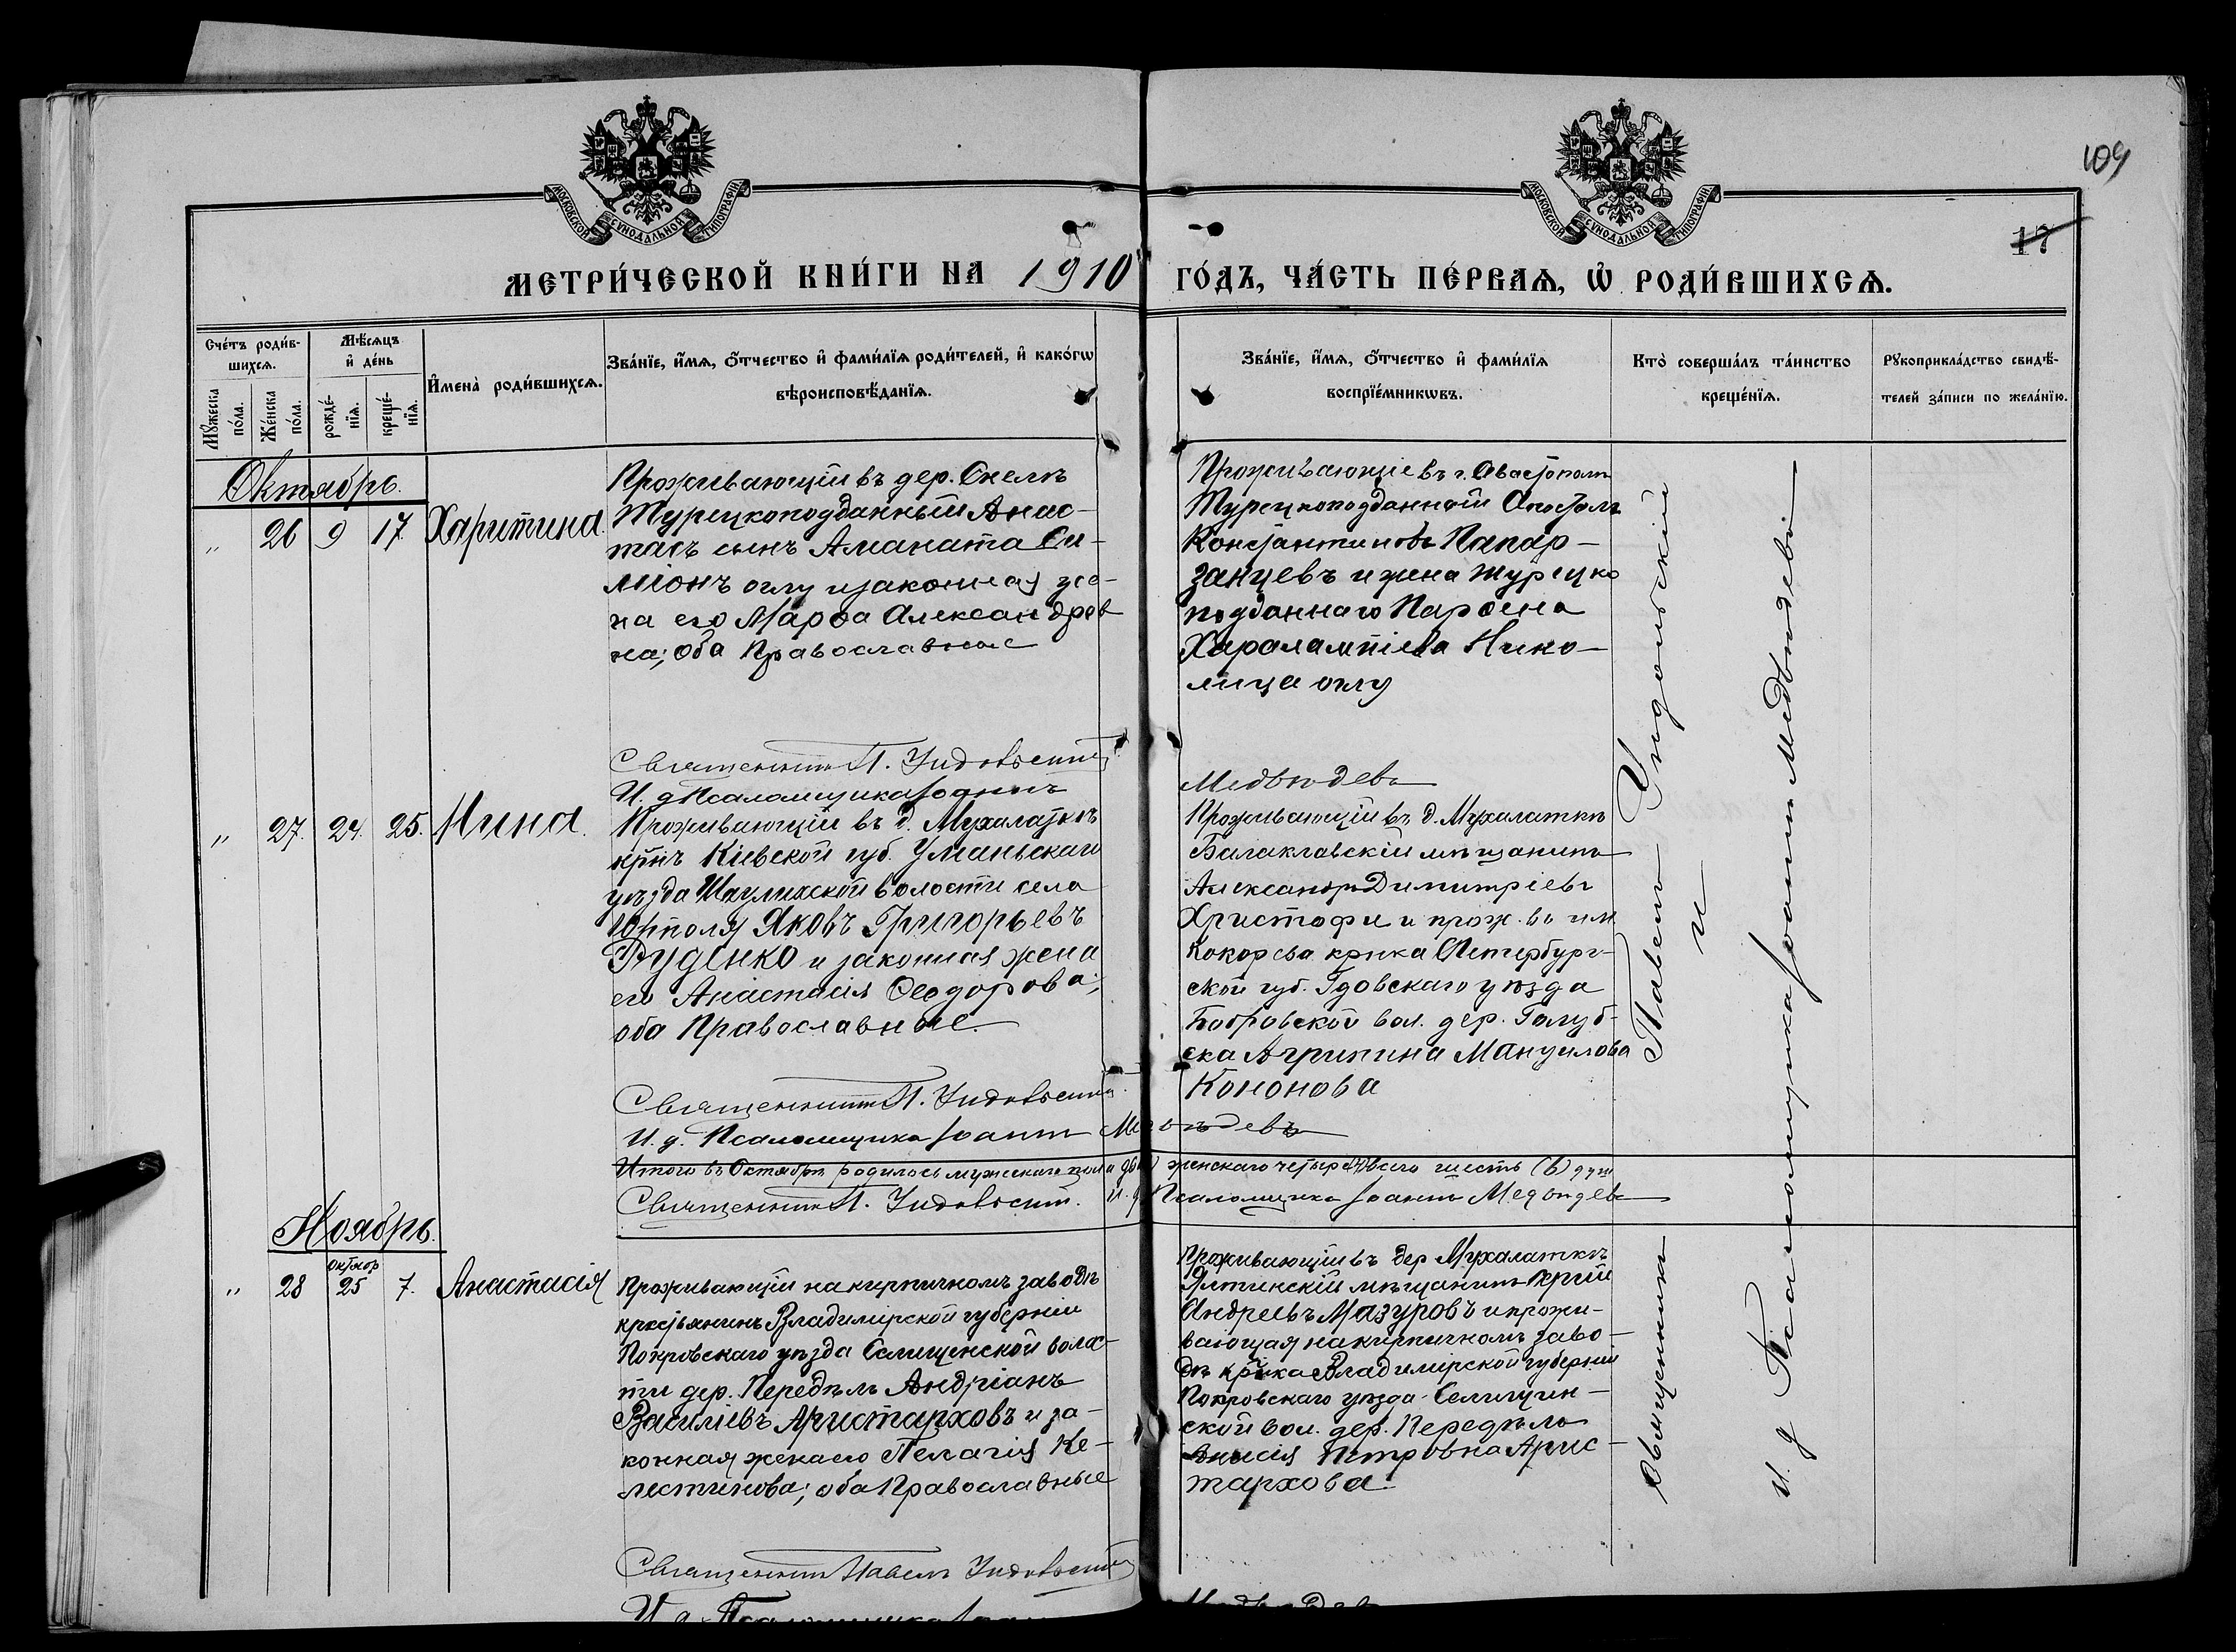 109
17
МОСКОВСКОЙ СѴНОДАЛЬНОЙ ТИПОГРАФІИ
МОСКОВСКОЙ СѴНОДАЛЬНОЙ ТИПОГРАФІИ
МЕТРИ́ЧЕСКОЙ КНИ́ГИ НА 1910 ГО́ДЪ, ЧА́СТЬ ПЕ́РВАѦ, Ѡ҆ РОДИ́ВШИХСѦ.
Сче́тъ роди́в-
шихсѧ.
Мꙋ́жеска по́ла.
Же́нска по́ла.
Мѣ́сѧцъ
и҆ де́нь
рожде́-
нїѧ.
креще́-
нїѧ.
И҆мена̀ роди́вшихсѧ.
Зва́нїе, и҆́мѧ, ѻ҆́тчество и҆ фами́лїѧ роди́телей, и҆ како́гѡ
вѣроисповѣ́данїѧ.
Зва́нїе, и҆́мѧ, ѻ҆́тчество и҆ фами́лїѧ
воспрїе́мникѡвъ.
Кто̀ соверша́лъ та́инство
креще́нїѧ.
Рꙋкоприкла́дство свидѣ́-
телей за́писи по жела́нїю.
Октябрь.
" 26 9 17. Харитина.
Проживающій въ дер. Скеля
Турецкоподданный Анас-
тасъ сынъ Аманата Си-
міонъ оглу и законная же-
на его Марѳа Александров
на; оба Православные
Проживающіе въ г. Севастополѣ
Турецкоподданный Апостолъ
Константиновъ Папар-
занцевъ и жена турецко
подданнаго Парѳена
Харалампіева Нико-
лица оглу
Священникъ П. Ундольскій
И. д. Псаломщика Іоаннъ Медвѣдевъ
" 27. 24. 25. Нина.
Проживающій въ д. Мухалаткѣ
кр̃нъ Кіевской губ. Уманьскаго
уѣзда Шаулихской волости села
Юрполя Яковъ Григорьевъ
Руденко и законная жена
его Анастасія Ѳеодорова;
оба Православные.
Проживающій въ д. Мухалаткѣ
Балаклавскій мѣщанинъ
Александръ Димитріевъ
Христофи и прож. въ им.
Кокорева кр̃нка С Петербург-
ской губ. Гдовскаго уѣзда
Бобровской вол. дер. Голуб-
ска Агрипина Мануилова
Кононова
Священникъ П. Ундольскій
И. д. Псаломщика Іоаннъ Медвѣдевъ
Итого въ Октябрѣ родилось мужескаго пола два женскаго четыре (4) всего шесть (6) душ
Священникъ П. Ундольскій. И. д. Псаломщика Іоаннъ Медвѣдевъ
Ноябрь.
" 28 Октябр 25 7. Анастасія
Проживающій на кирпичномъ заводѣ
крестьянинъ Владимірской губерніи
Покровскаго уѣзда Селищенской волос-
ти дер. Передѣлъ Андріанъ
Василіевъ Аристарховъ и за-
конная жена его Пелагія Ке-
лестинова; оба Православные
Проживающій въ дер Мухалаткѣ
Ялтинскій мѣщанинъ Юрій
Андреевъ Мазуровъ и прожи-
вающая на кирпичномъ заво-
дѣ кр̃нка Владимірской губерніи
Покровскаго уѣзда Селищен-
ской вол. дер. Передѣлъ
Анисія Петровна Арис-
тархова.
Священникъ Павелъ Ундольскій
И. д. Псаломщика Іоаннъ Медвѣдевъ
Священникъ Павелъ Ундольскій
и
И. д Псаломщика Іоаннъ Медвѣдевъ